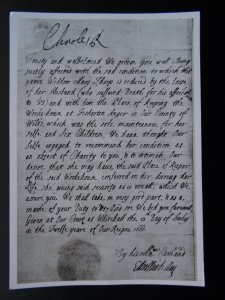 Charles R
Trusty and welbeloved We greet you well. Being
justly affected with the sad condition to which this
poore Widdow Mary Thorp is reduced by the losse
of her Husband (who suffered Death for his affection
to Us) and with him the Place of Keeping the
Workehouse, at Fisherton Anger in Our County of
Wilts, which was the sole maintenance for her
selfe and Six Children, We have thought Our
Selfe engaged to recommend her condition as
an object of Charity to you, & to intimate Our
desire, that she may have the said Place, & Keeper
of the Workehouse conferred on her during her
life, she giving such security as is usuall, which We
assure you We shall take in very good part, as a
marke, of your Duty to Us. And so We bid you farewell.
Given at Our Court at Whitehall the day of July
in the Twelfe yeare of Our Reigne 1660.
By his Ma.ties Comand